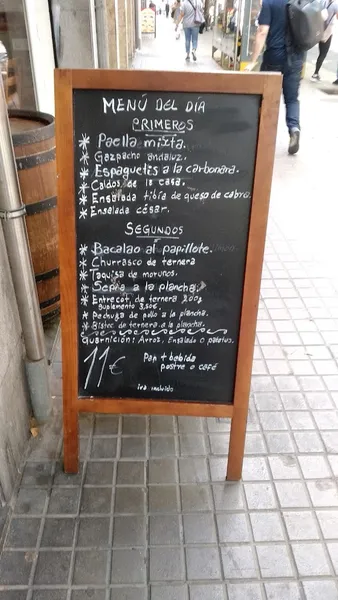 MENÚ DEL DÍA
PRIMEROS
* Paella mixta.
* Gazpacho andaluz.
* Espaguetis a la carbonara.
* Caldos de la casa.
* Ensalada tibia de queso de cabra.
* Ensalada césar.
SEGUNDOS
* Bacalao al papillote.
* Churrasco de ternera
* Taquisa de morunos.
* Sepia a la plancha.
* Entrecot de ternera 200g
suplemento 3,50€.
* Pechuga de pollo a la plancha.
* Bistec de ternera a la plancha.
Guarnición: Arroz, Ensalada o patatas.
11€
Pan + bebida
postre o café
iva incluido